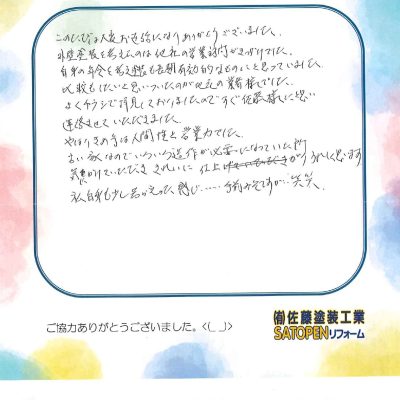 このたびは大変お世話になりありがとうございました。
外壁塗装を考えたのは他社の営業訪問がきっかけでした。
自身の年令を考え
も長期有効的なものにと思っていました。
比較もしたいと思いついたのが地元の業者様でした。
よくチラシで拝見しておりましたのですぐ佐藤様にと思い
連絡させていただきました。
やはりきめ手は人間性と営業力でした。
古い家なのでいろいろ造作が必要になっていた所
気にかけていただき きれいに 仕上がりうれしく思います
私自身も少し若がえった感じ……手前みそですが…笑笑、
ご協力ありがとうございました。<(_ _)>
(有)佐藤塗装工業
SATOPENリフォーム